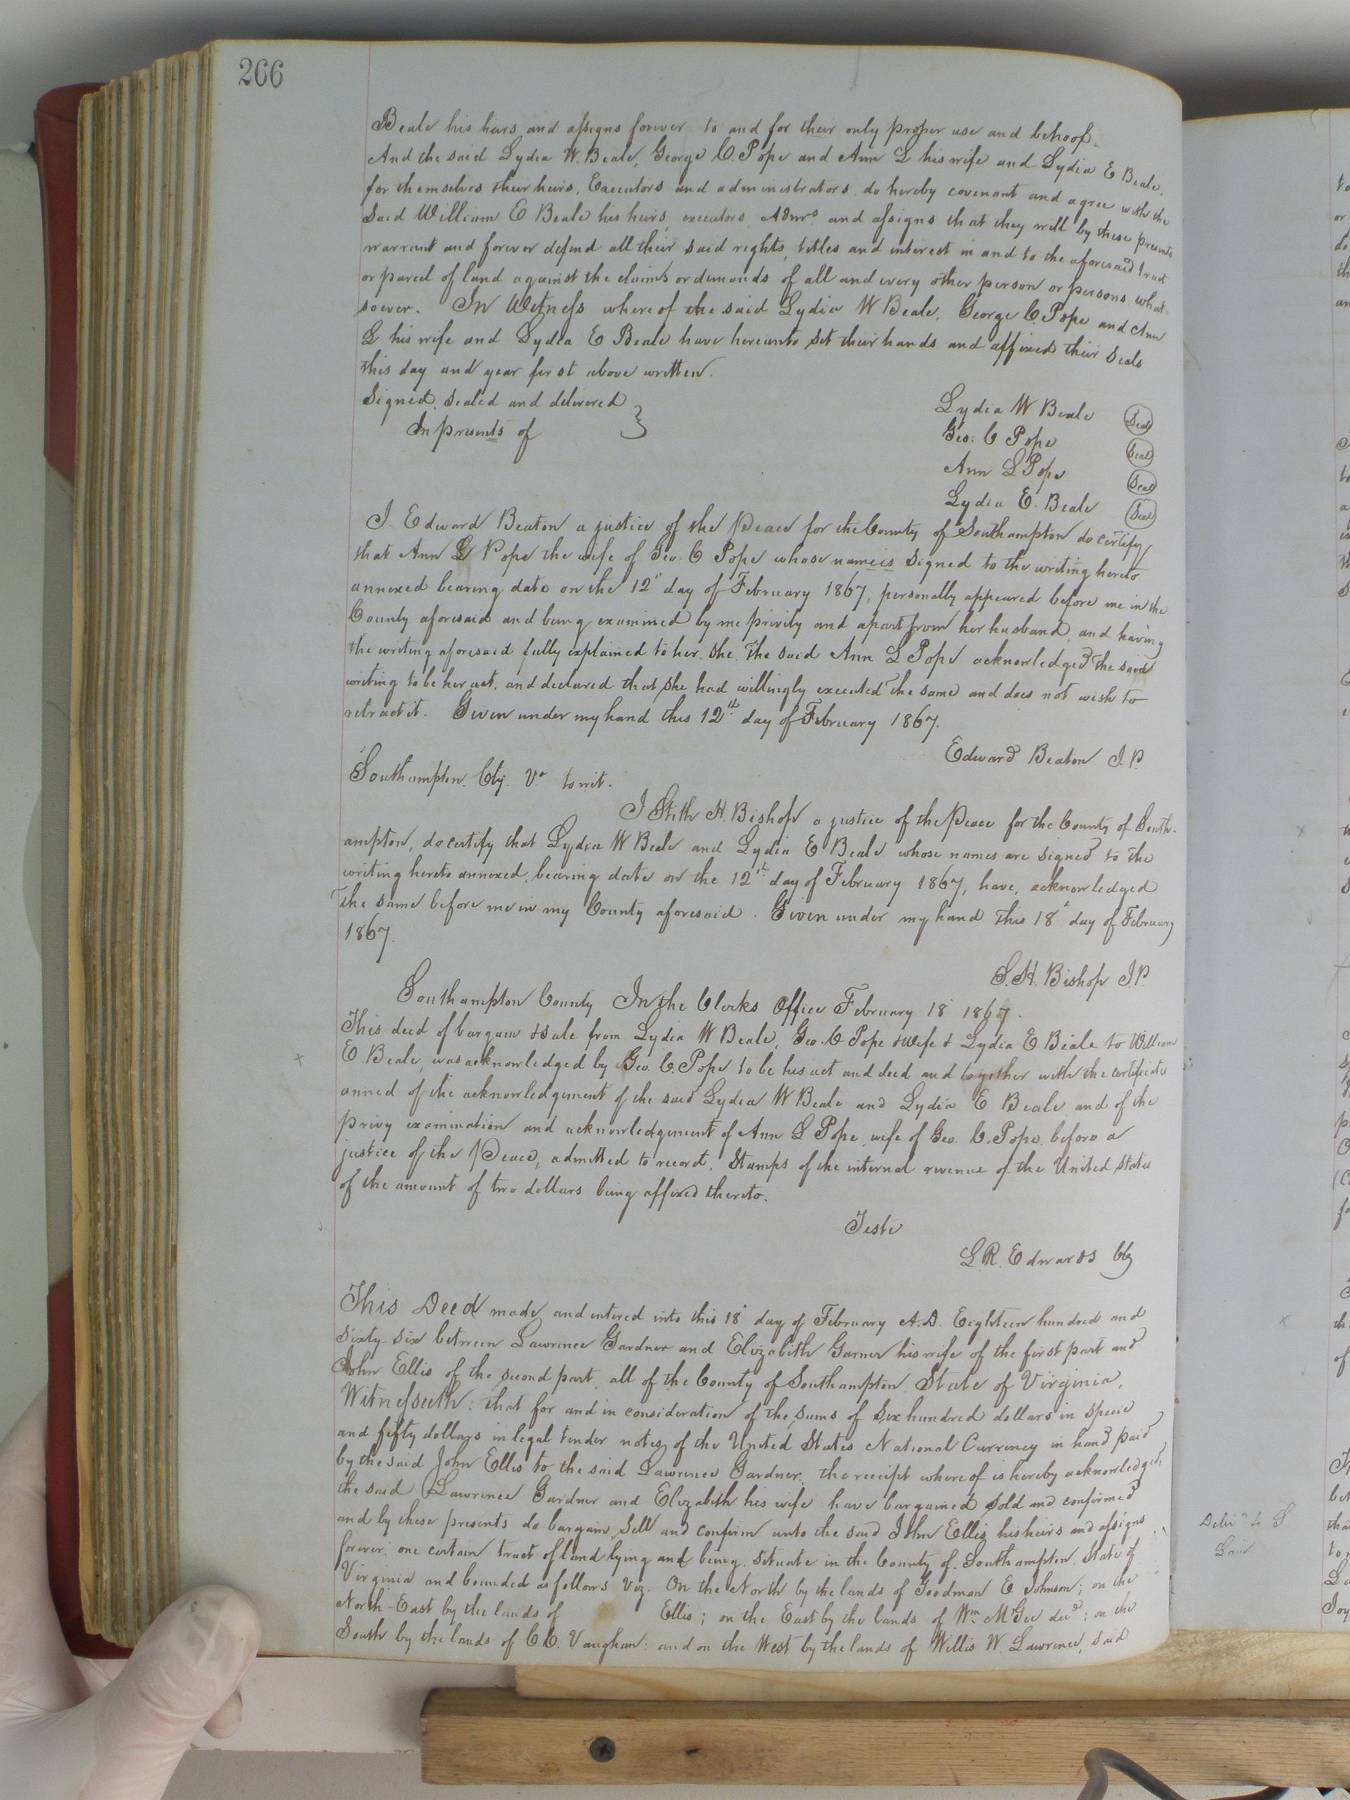 266
Beale his heirs and assigns forever to and for their only proper use and behoof.
And the said Lydia W. Beale, George C Pope and Ann L his wife and Lydia E Beale,
for themselves their heirs, Executors and administrators do hereby covenant and agree with the
said William E Beale his heirs, executors, Admrs and assigns that they will by these presents
warrant and forever defend all their said rights, titles and interest in and to the aforesaid tract
or parcel of land against the claims or demands of all and every other person or persons what-
soever. In Witness whereof the said Lydia W Beale, George C. Pope and Ann
L his wife and Lydia E Beale have hereunto set their hands and affixed their seals
this day and year first above written.
Signed, sealed and delivered }
In presents of
Lydia W Beale Seal
Geo: C Pope Seal
Ann L Pope Seal
Lydia E. Beale Seal
I Edward Beaton a justice of the Peace for the County of Southampton do certify
that Ann L Pope the wife of Geo. C Pope whose name is signed to the writing hereto
annexed bearing date on the 12th day of February 1867, personally appeared before me in the
County aforesaid and being examined by me privily and apart from her husband, and having
the writing aforesaid fully explained to her. She, the said Ann L Pope acknowledged the said
writing to be her act, and declared that she had willingly executed the same and does not wish to
retract it. Given under my hand this 12th day of February 1867.
Edward Beaton J.P
Southampton Cty. Va. to wit.
I Stith H. Bishop a justice of the Peace for the County of South-
ampton, do certify that Lydia W Beale and Lydia E Beale whose names are signed to the
writing hereto annexed, bearing date on the 12th day of February 1867, have, acknowledged
the same before me in my County aforesaid. Given under my hand this 18th day of February
1867.
S. H. Bishop J.P.
Southampton County In the Clerks Office February 18 1867.
This deed of bargain & sale from Lydia W Beale, Geo. C Pope & wife & Lydia E Beale to William
E Beale, was acknowledged by Geo. C. Pope to be his act and deed and together with the certificate
anned of the acknowledgement of the said Lydia W Beale and Lydia E Beale and of the
privy examination and acknowledgement of Ann L Pope wife of Geo. C. Pope before a
justice of the Peace, admitted to record. Stamps of the internal revenue of the United States
of the amount of two dollars being affixed thereto.
Teste
L. R. Edwards Clk
This Deed made and entered into this 18th day of February A.D. Eighteen hundred and
Sixty-six between Lawrence Gardner and Elizabeth Garner his wife of the first part and
John Ellis of the second part, all of the County of Southampton State of Virginia,
Witnesseth: that for and in consideration of the sums of Six hundred dollars in specie
and fifty dollars in legal tender notes of the United States National Currency in hand paid
by the said John Ellis to the said Lawrence Gardner, the receipt whereof is hereby acknowledged
the said Lawrence Gardner and Elizabeth his wife have bargained, sold and confirmed
and by these presents do bargain, sell and confirm unto the said John Ellis his heirs and assigns
forever: one certain tract of land lying and being, situate in the County of Southampton, State of
Virginia and bounded as follows viz. On the North by the lands of Goodman E Johnson; on the
North-East by the lands of Ellis; on the East by the lands of Wm McGee decd; on the
South by the lands of C.C. Vaughan: and on the West by the lands of Willis W. Lawrence, said